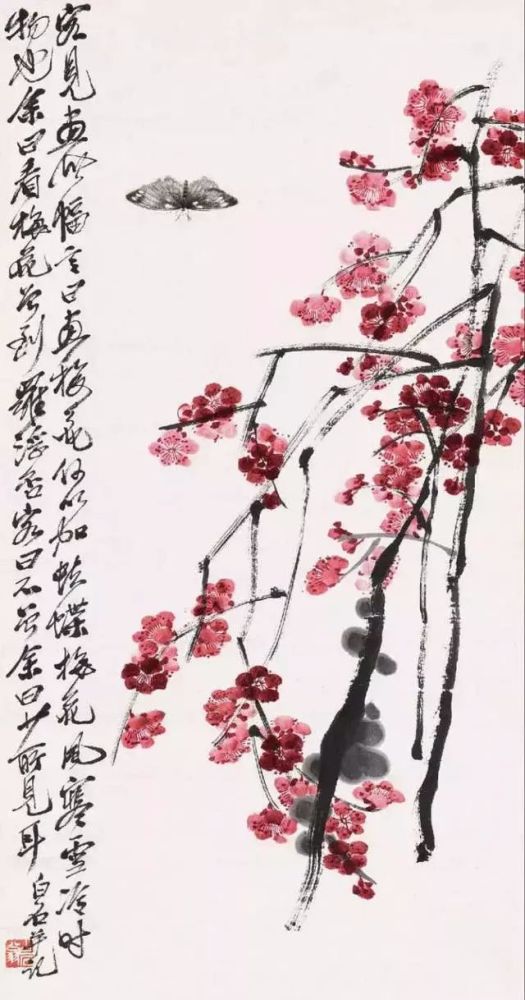 客見畫此幅言曰畫梅花何以加蛺蝶梅花風寒雪冷时
物也余曰看梅花曾到羅浮否客曰不曾余曰少所見耳
白石并记